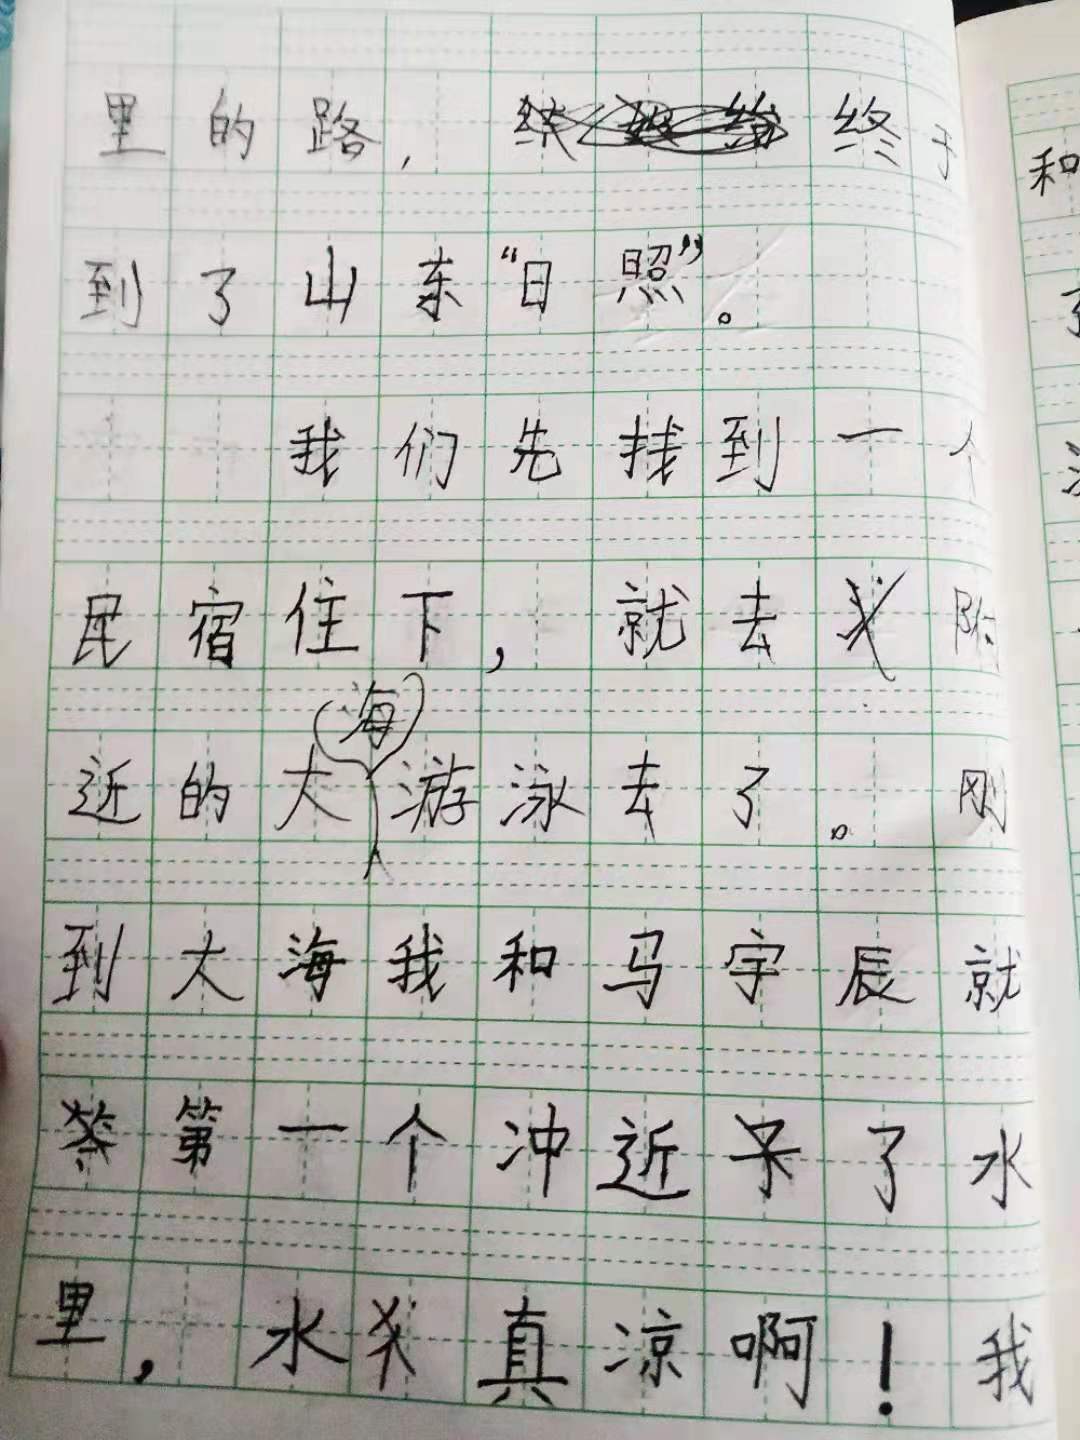 里的路，终于
到了山东“日照”。
我们先找到一个
民宿住下，就去附
近的大海游泳去了。刚
到大海我和马宇辰就
第一个冲近了水
里，水真凉啊！我
和